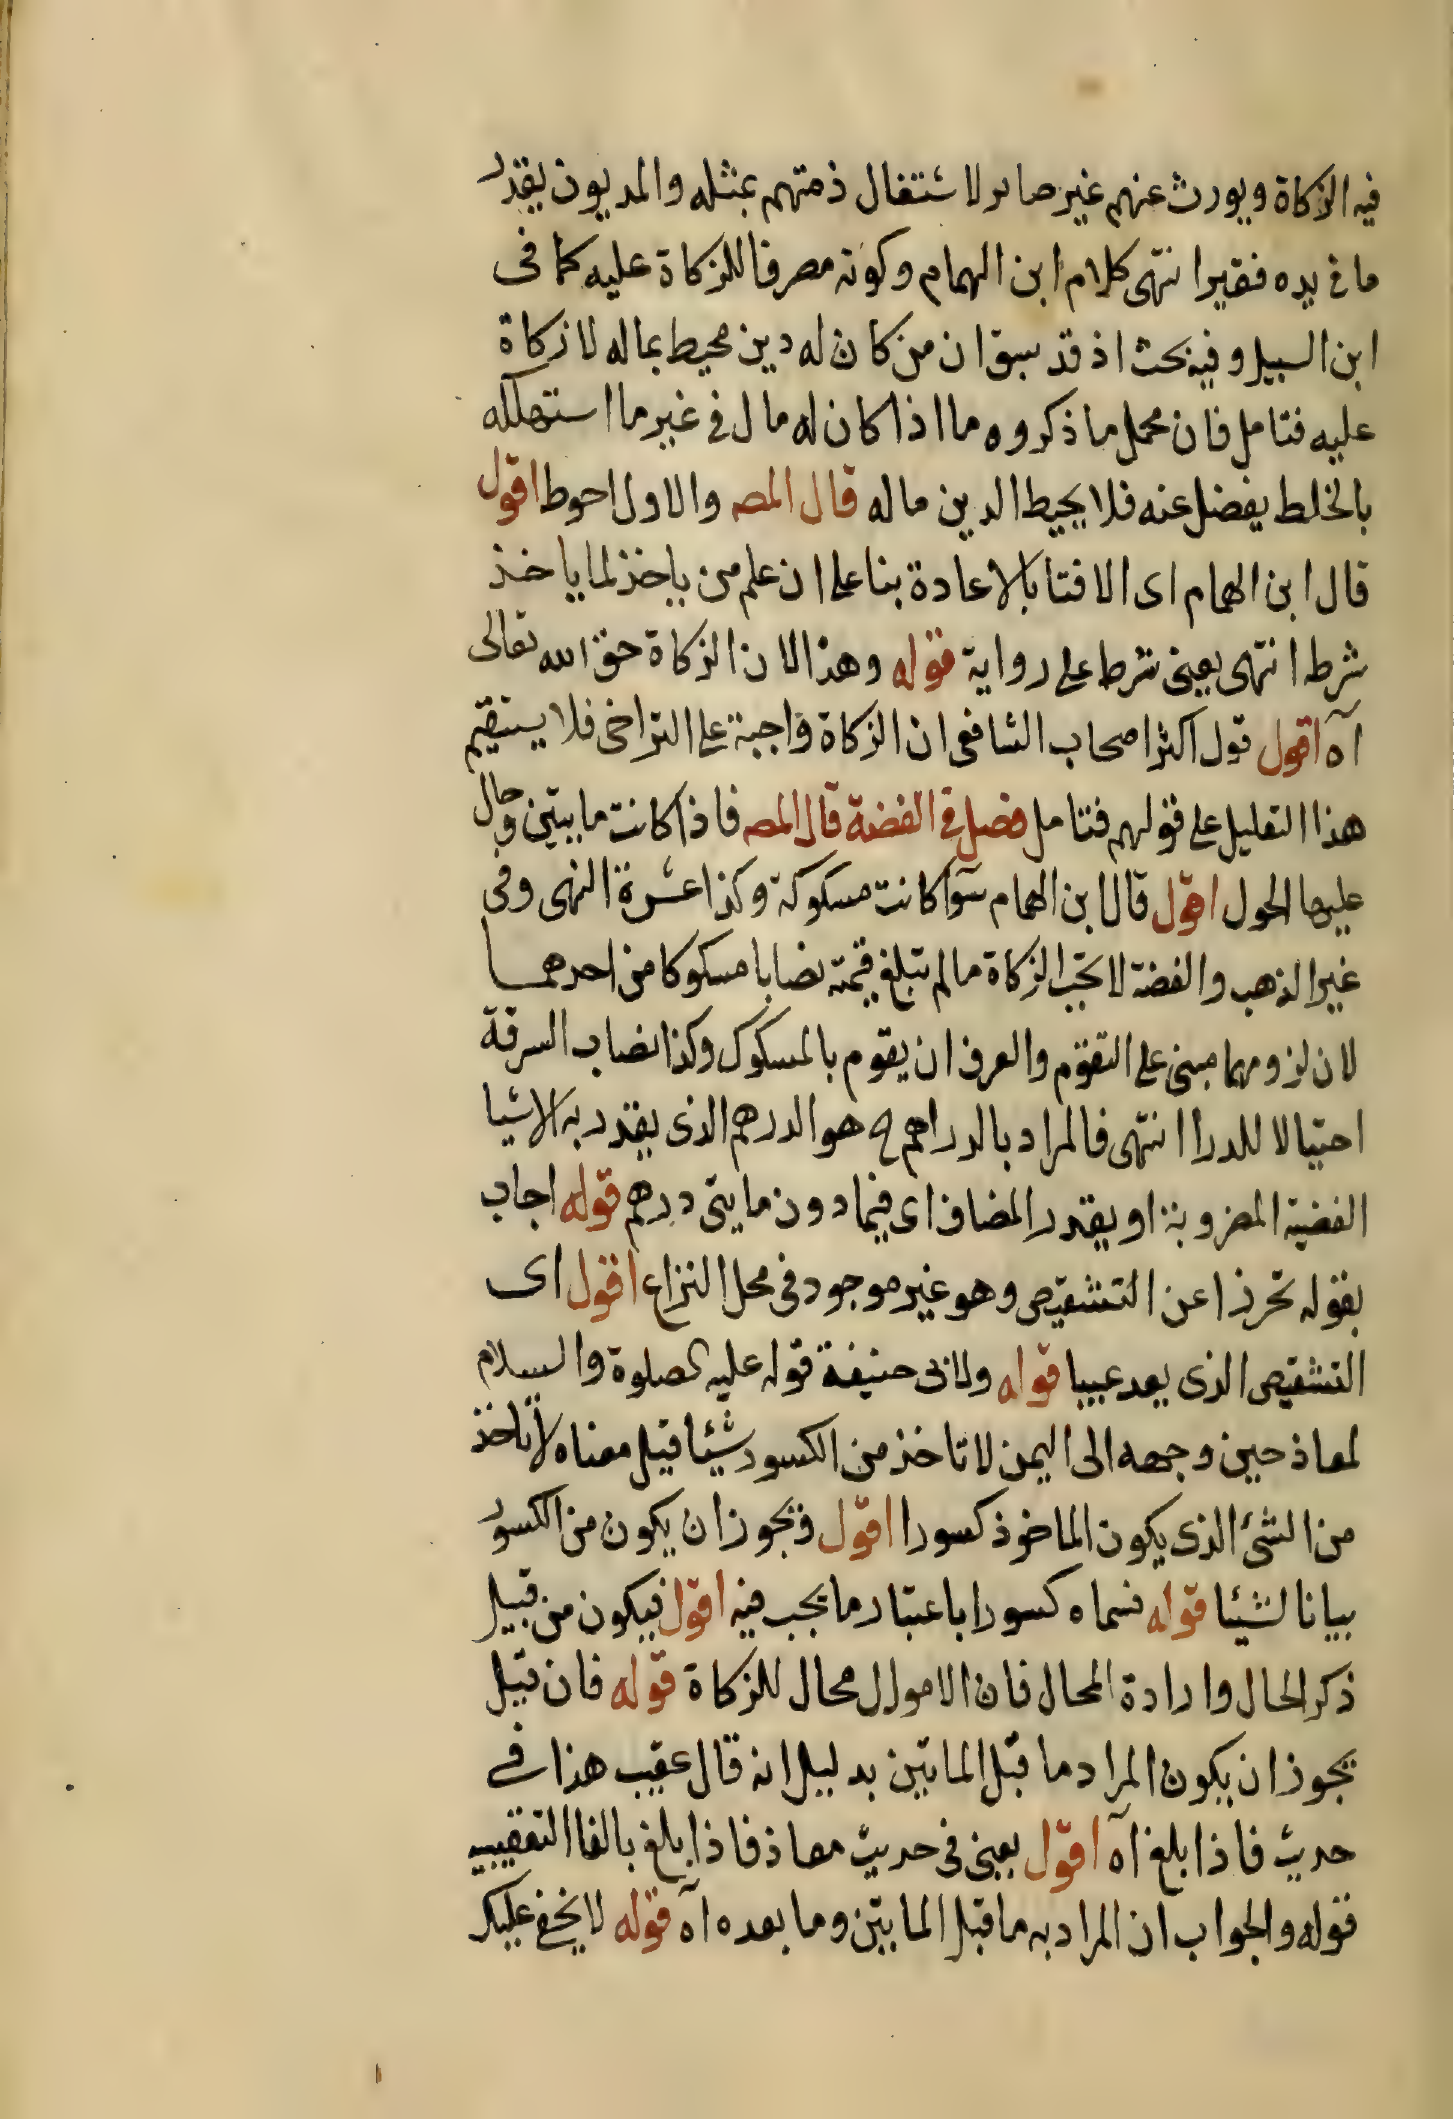 فيه الزكاة ويورث عنهم غير ضائر لاشتغال ذمتهم بمثله والمديون بقدر
ما في يده فقير انتهى كلام ابن الهمام وكونه مصرفا للزكاة عليه كما في
ابن السبيل وفيه بحث اذ قد سبق ان من كان له دين محيط بماله لا زكاة
عليه فتامل فان محمل ما ذكروه ما اذا كان له مال في غير ما استهلكه
بالخلط يفضل عنه فلا يحيط الدين ماله قال المصـ والاول احوط اقول
قال ابن الهمام اى الافتا بالاعادة بنا على ان علم من ياخذ لما ياخذ
شرط انتهى يعنى شرط على رواية قوله وهذا لان الزكاة حق الله تعالى
آه اقول قول اكثر اصحاب الشافعى ان الزكاة واجبة على التراخى فلا يستقيم
هذا التعليل على قولهم فتامل فصل في الفضة قال المصـ فاذا كانت مايتين وحال
عليها الحول اقول قال ابن الهمام سوآ كانت مسكوكة وكذا عشرة المهر وفى
غير الذهب والفضة لا تجب الزكاة ما لم تبلغ قيمته نصابا مسكوكا من احدهما
لان لزومهما مبنى على التقوم والعرف ان يقوم بالمسكوك وكذا نصاب السرقة
احتيالا للدرا انتهى فالمراد بالدراهم ح هو الدرهم الذى يقدر به الاشيا
الفضية المضروبة او يقدر المضاف اى فيما دون مايتى درهم قوله اجاب
بقوله تحرزا عن التشقيص وهو غير موجود فى محل النزاع اقول اى
التشقيص الذى يعد عيبا قوله ولابى حنيفة قوله عليه الصلوة والسلام
لمعاذ حين وجهه الى اليمن لا تاخذ من الكسور شيئا قيل معناه لا تاخذ
من الشئ الذى يكون الماخوذ كسورا اقول فيجوز ان يكون من الكسور
بيانا لشيئا قوله فسماه كسورا باعتبار ما يجب فيه اقول فيكون من قبيل
ذكر الحال وارادة المحال فان الاموال محال للزكاة قوله فان قيل
يجوز ان يكون المراد ما قبل الماتين بدليل انه قال عقيب هذا في
حديث فاذا بلغ آه اقول يعنى فى حديث معاذ فاذا بلغ بالفا التعقيبيه
قوله والجواب ان المراد به ما قبل المايتين وما بعده آه قوله لا يخفى عليك